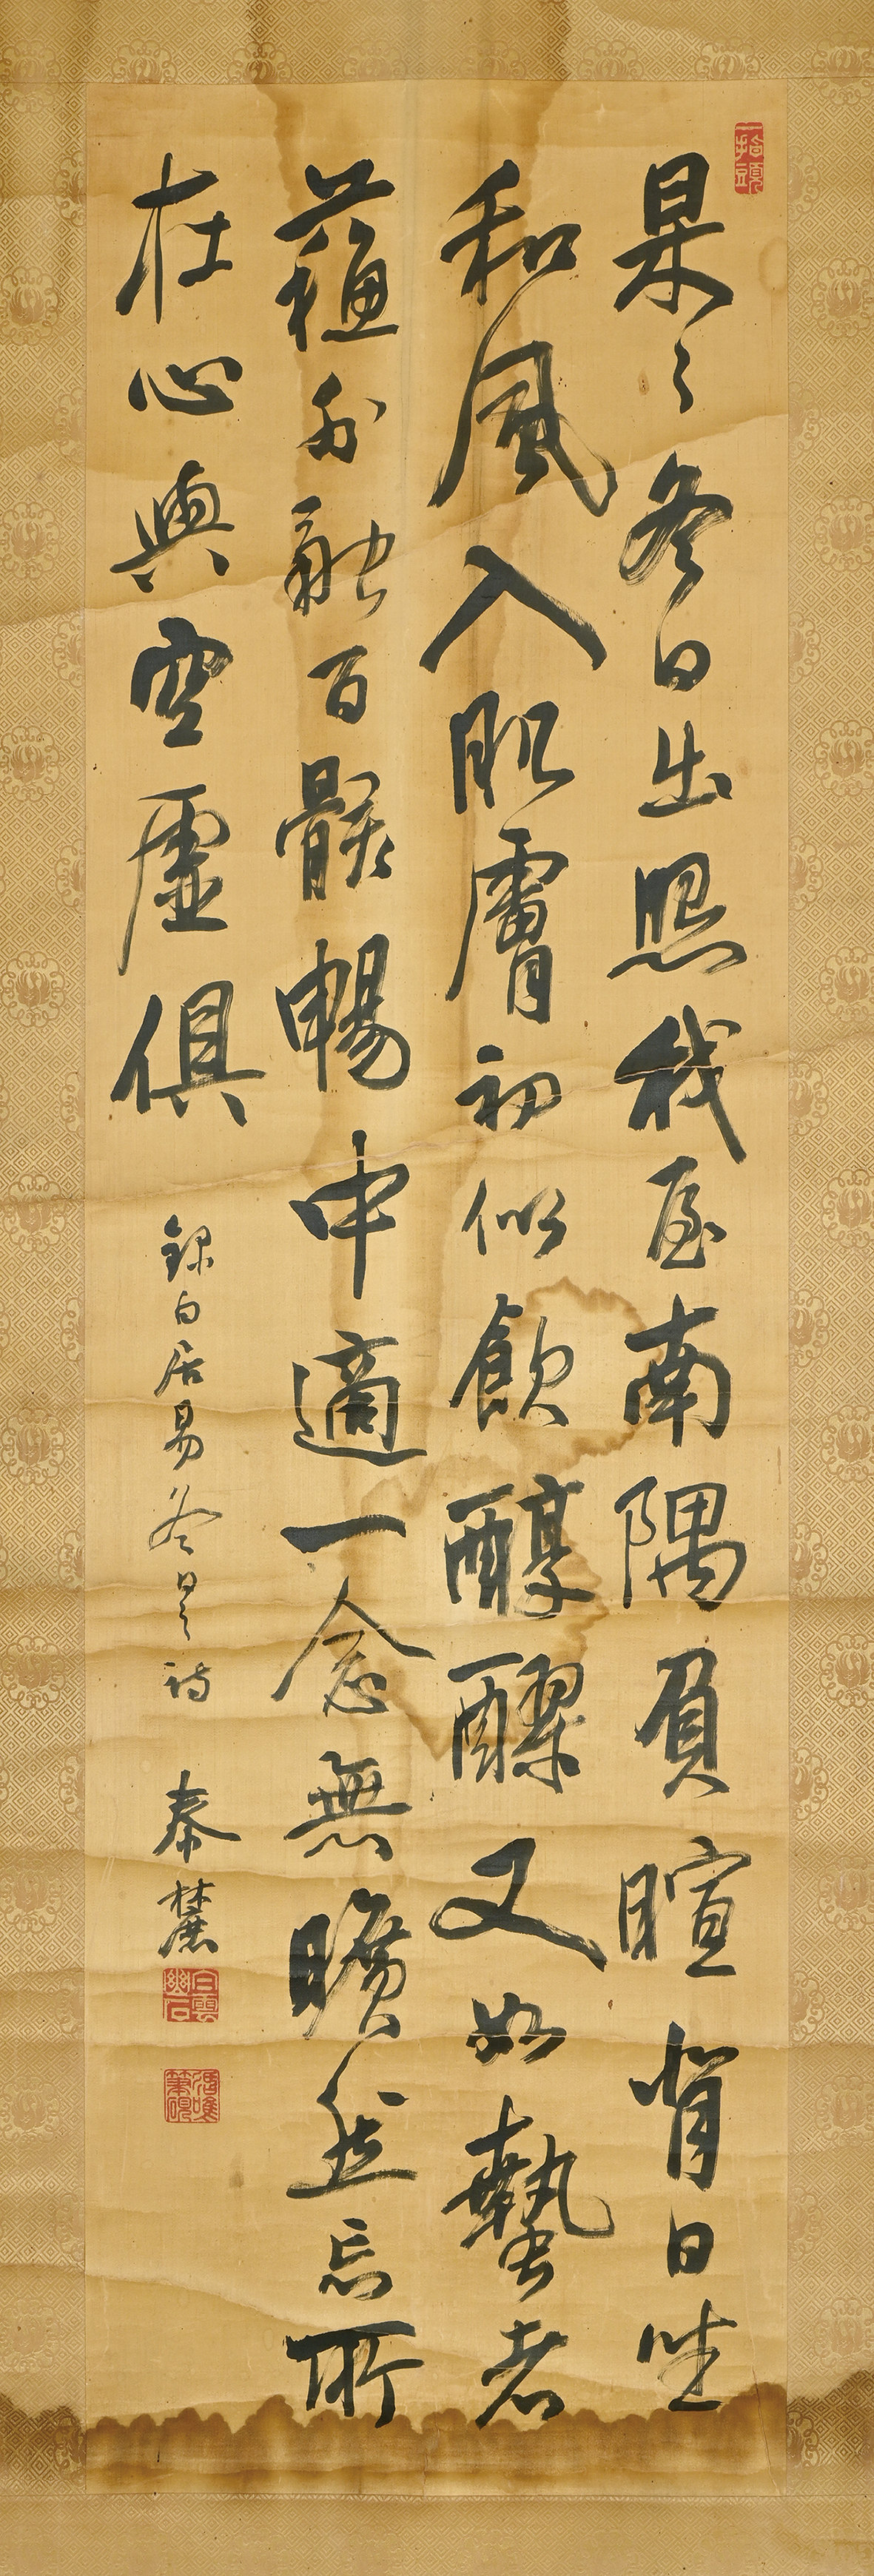 杲々冬日出照我屋南隅負暄背日坐
和風入肌膚初似飲醇醪又如蟄者
蘓外融百骸暢中適一念無曠然忘所
在心與空虛俱
錄白居易冬日之詩 麓
白雲幽石